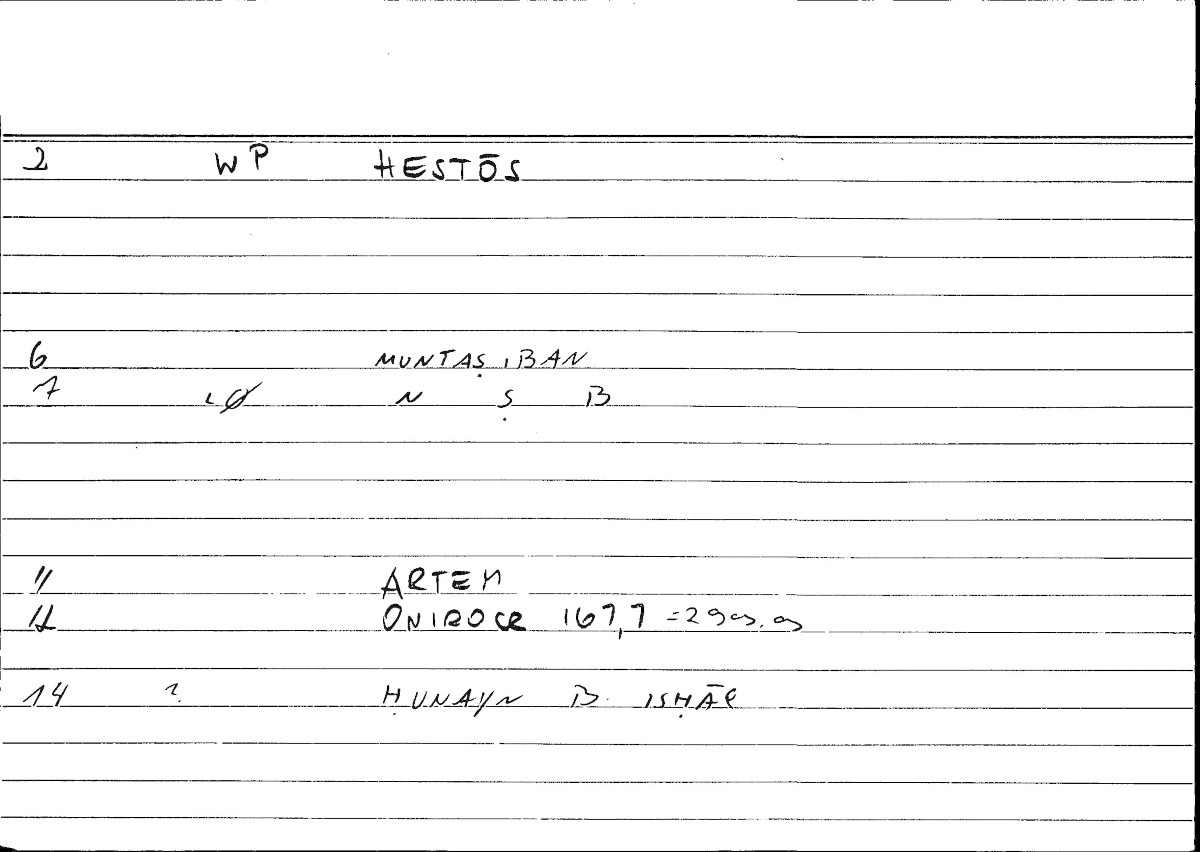 2 WP HESTŌS
6 MUNTAṢIBAN
7 N Ṣ B
11 ARTEM
12 ONIROCR 167,7 =
14 ? ḤUNAYN B. ISḤĀQ